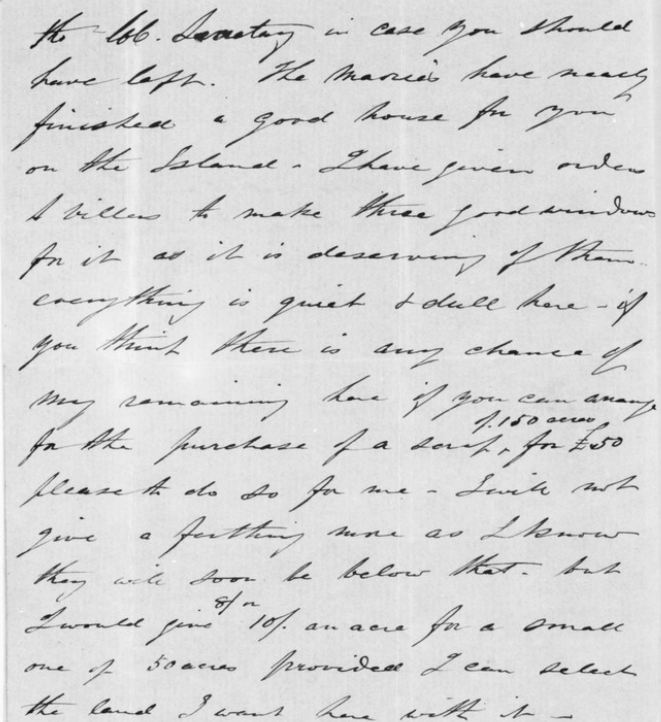 the Col. Secretary in case you should
have left. The Maories have nearly
finished a good house for you
on the Island - I have given orders
to make three good windows
for it as it is deserving of them -
everything is quiet & dull here - if
you think there is any chance of
my remaining here if you can arrange
of 150 acres
for the purchase of a scrip, for £50
please to do so for me - I will not
give a farthing more as I know
they will soon be below that - but
8/ or
I would give 10/. an acre for a small
one of 50 acres provided I can select
the land I want here with it -